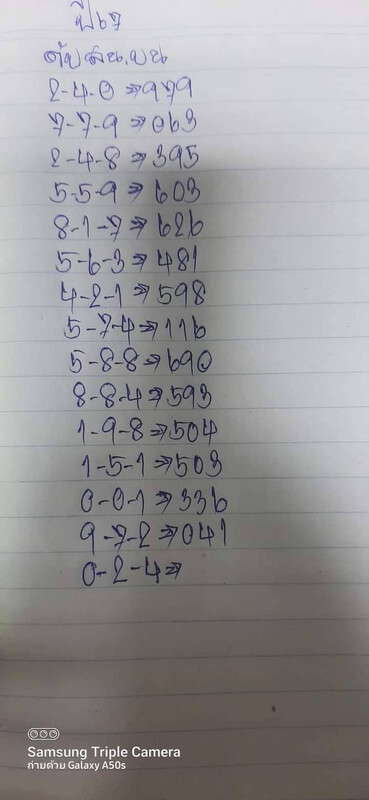 ปี67
2-4-0⇒979
7-7-9⇒063
2-4-8⇒395
5-5-9⇒603
8-1-7⇒626
5-6-3⇒481
4-2-1⇒598
5-7-4⇒116
5-8-8⇒690
8-8-4⇒593
1-9-8⇒504
1-5-1⇒503
0-0-1⇒336
9-7-2⇒041
0-2-4⇒
Samsung Triple Camera
ถ่ายด้วย Galaxy A50s